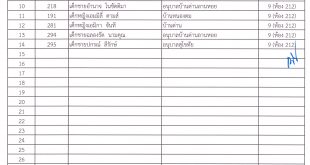 10 218 เด็กชายอำนาจ ในชัดสิมา อนุบาลบ้านด่านลานหอย 9 (ห้อง 212)
11 191 เด็กหญิงเอมมิลี่ ดวงส์ บ้านหนองตม 9 (ห้อง 212)
12 281 เด็กหญิงเอมิกา จันที บ้านด่าน 9 (ห้อง 212)
13 294 เด็กชายฉลองรัช นวมคุณ อนุบาลบ้านด่านลานหอย 9 (ห้อง 212)
14 295 เด็กชายปกรณ์ ลีรักษ์ อนุบาลสุโขทัย 9 (ห้อง 212)
15
16
17
18
19
20
21
22
23
24
25
26